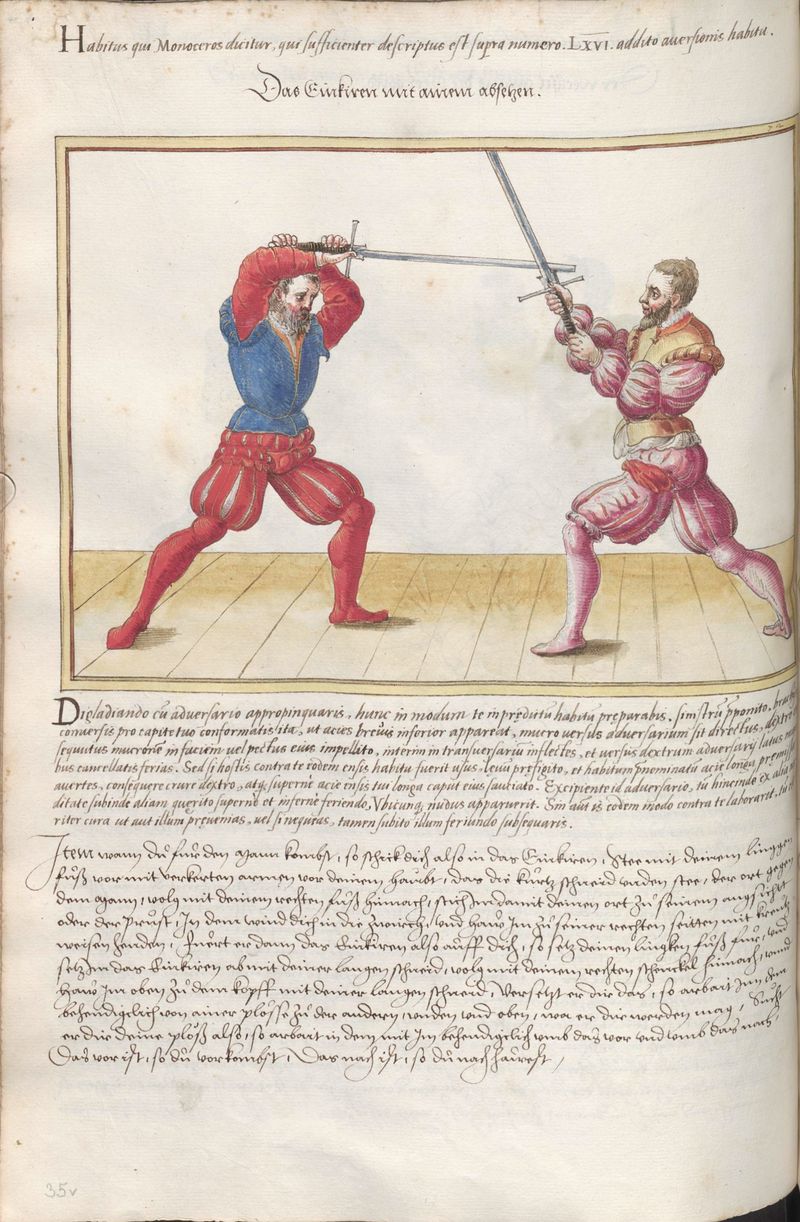 Habitus qui Monoceros dicitur, qui sufficienter descriptus est supra numero. LXVI. addito aversionis habitu.
Das Einkiren mit ainem absetzen.
Digladiando cũ adversario appropinquaris, hunc in modum te in preditũ habitũ preparabis. sinistrũ pponito, brachijs
conversis pro capite tuo conformatis ita, ut acies brevis inferior appareat, mucro versus adversarium sit directus, dextro
sequutus mucronẽ in faciem vel pectus eius impellito, interim in transversariũ inflectes, et versus dextrum adversarij latus
bus cancellatis ferias. Sed si hostis contra te eodem ensis habitu fuerit usus, levũ prefigito, et habitum pnominatũ acie longa
avertes, consequere crure dextro, atq. supernè acie ensis tui longa caput eius sauciato. Excipiente id adversario, tu hinc inde ex alia
ditate subinde aliam querito supernè et infernè feriendo, Vbicunq. nudus apparuerit. Sin aut is eodem modo contra te laborarit,
riter cura ut aut illum prevenias, vel si nequeas, tamen subito illum feriundo subsequaris.
Item wann dũ für den mann kombst, so schick dich also in das Einkiren, Stee mit deinem lingge
füß vor mit verkurten armen vor deinem haubt, das die kurtz schneid unden stee, der ort gegen
dem mann, volg mit deinem rechten füß hinnach, stich Im damit deinen ort zũ seinem angsicht
oder der prust, In dem wind dich in die zwirch, und haw Im zũ seiner rechten seitten mit kreutz
weisen henden, Fuert er dann das Einkiren also auff dich, so setz deinen lingken füß für, und
setz Im das Einkiren ab mit deiner langen schneid, volg mit deinem rechten schenckel hinnach, unnd
haw Im oben zũ dem kopff mit deiner langen schneid, Versetzt er dir das, so arbait Im dem
behendigclich von ainer plösse zũ der anderen, unden und oben, wa er dir werden mag, Sucht
er dir deine plöß also, so arbait in dem mit Im behendigclich umb das vor und umb das nach,
Das vor ist, so dũ vorkombst, Das nach ist, so dũ nach
35v